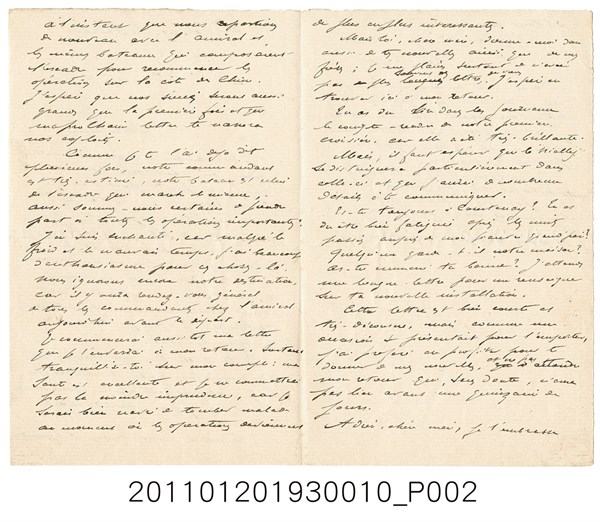 à l'instant que nous repartions
de nouveau avec l'amiral et
les mêmes bateaux qui composaient
l'escadre pour recommencer les
opérations sur la côte de Chine.
J'espère que nos succès seront aussi
grands que la première fois et que
ma prochaine lettre te narrera
nos exploits.
Comme je te l'ai déjà dit
plusieurs fois, notre commandant
est très estimé, notre bateau est celui
de l'escadre qui marche le mieux,
aussi sommes-nous certains de prendre
part à toutes les opérations importantes.
J'en suis enchanté, car malgré le
froid et le mauvais temps, j'ai beaucoup
d'enthousiasme pour ces choses-là.
Nous ignorons encore notre destination,
car il y aura rendez-vous général
de tous les commandants chez l'amiral
aujourd'hui avant le départ.
Je commencerai aussitôt ma lettre
que je t'enverrai à mon retour. Surtout
tranquillise-toi sur mon compte: ma
santé est excellente et je ne commettrai
pas la moindre imprudence, car je
serais bien navré de tomber malade
au moment où les opérations deviennent
de plus en plus intéressantes.
Mais toi, chère amie, donne-moi donc
aussi de tes nouvelles ainsi que de
pas de plus longues lettres, j'espère en
trouver ici à mon retour.
Tu as dû lire dans les journaux
le compte-rendu de notre première
croisière, car elle a été très brillante.
Mais, il faut espérer que le Nielly
se distinguera particulièrement dans
celle-ci et que j'aurai de nombreux
détails à te communiquer.
Es-tu toujours à ? Tu as
dû être bien fatiguée après les nuits
passées auprès de mon pauvre grand-père?
Quelqu'un garde-t-il notre maison?
As-tu emmené ta bonne? J'attends
une longue lettre pour me renseigner
sur ta nouvelle installation.
Cette lettre est bien courte et
très décousue, mais comme une
occasion se présentait pour l'emporter,
j'ai préféré en profiter pour te
donner de mes nouvelles, et ne pas attendre
mon retour qui, sans doute, n'aura
pas lieu avant une quinzaine de
jours.
Adieu, chère amie, je t'embrasse
201101201930010_P002